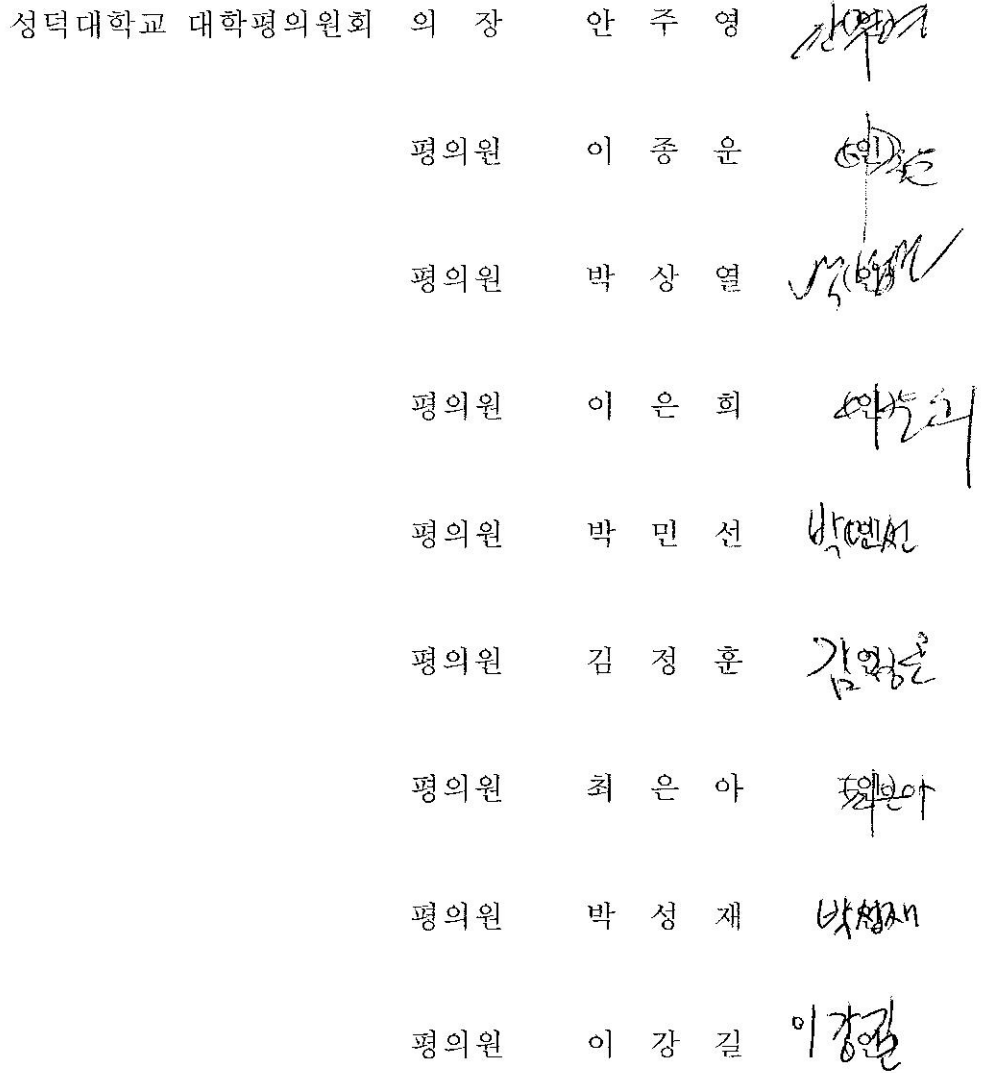 성덕대학교 대학평의원회 의 장 안 주 영 (인)
평의원 이 종 운 (인)
평의원 박 상 열 (인)
평의원 이 은 희 (인)
평의원 박 민 선 (인) 박민선
평의원 김 정 훈 (인) 김정훈
평의원 최 은 아 (인) 최은아
평의원 박 성 재 (인) 박성재
평의원 이 강 길 (인) 이강길